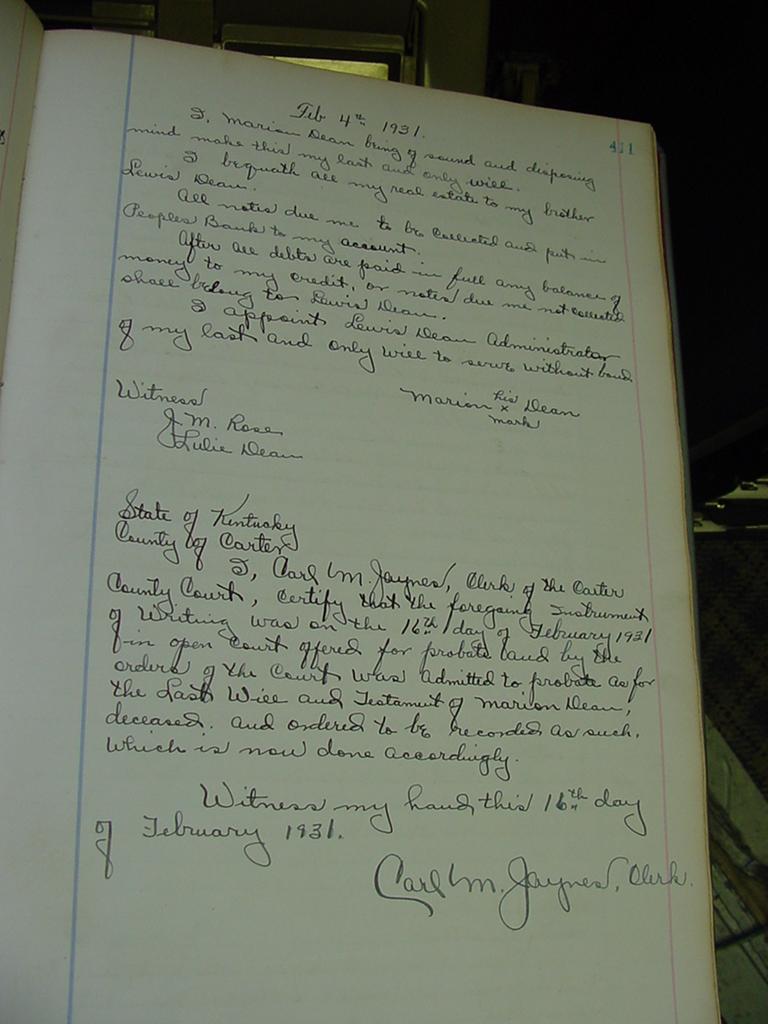 411
Feb 4th 1931.
I, Marion Dean being of sound and disposing
mind make this my last and only will.
I bequath all my real estate to my brother
Lewis Dean.
All notes due me to be collected and put in
Peoples Bank to my account.
After all debts are paid in full any balance of
money to my credit, or notes due me not collected
shall belong to Lewis Dean.
I appoint Lewis Dean Administrator
of my last and only will to serve without bond
his
Marion x Dean
mark
Witness
J. M. Rose
Lulie Dean
State of Kentucky
County of Carter
I, Carl M. Jaynes, Clerk of the Carter
County Court, certify that the foregoing Instrument
of Writing was on the 16th day of February 1931
in open Court offered for probate and by the
orders of the Court was admitted to probate as for
the Last Will and Testament of Marion Dean,
deceased. and ordered to be recorded as such.
Which is now done accordingly.
Witness my hand, this 16th day
of February 1931.
Carl M. Jaynes, Clerk.